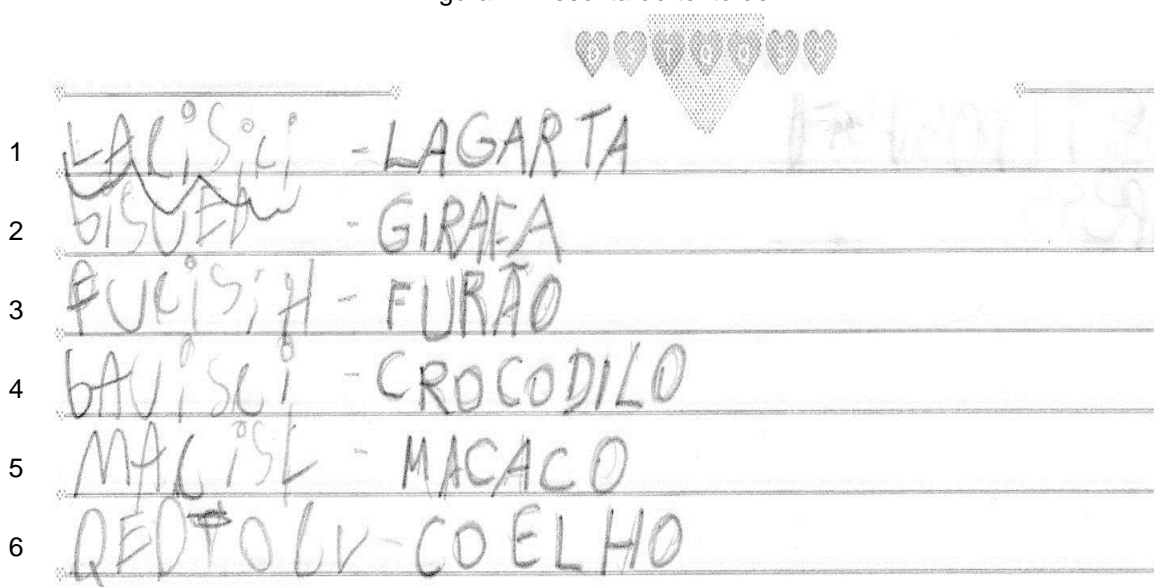 D S T Q Q S S
1 LACiSiCi - LAGARTA
2 GiSUEA - GIRAFA
3 FUCiSiH - FURÃO
4 bAUiSCi - CROCODILO
5 MACiSL - MACACO
6 QEDTOLV - COELHO